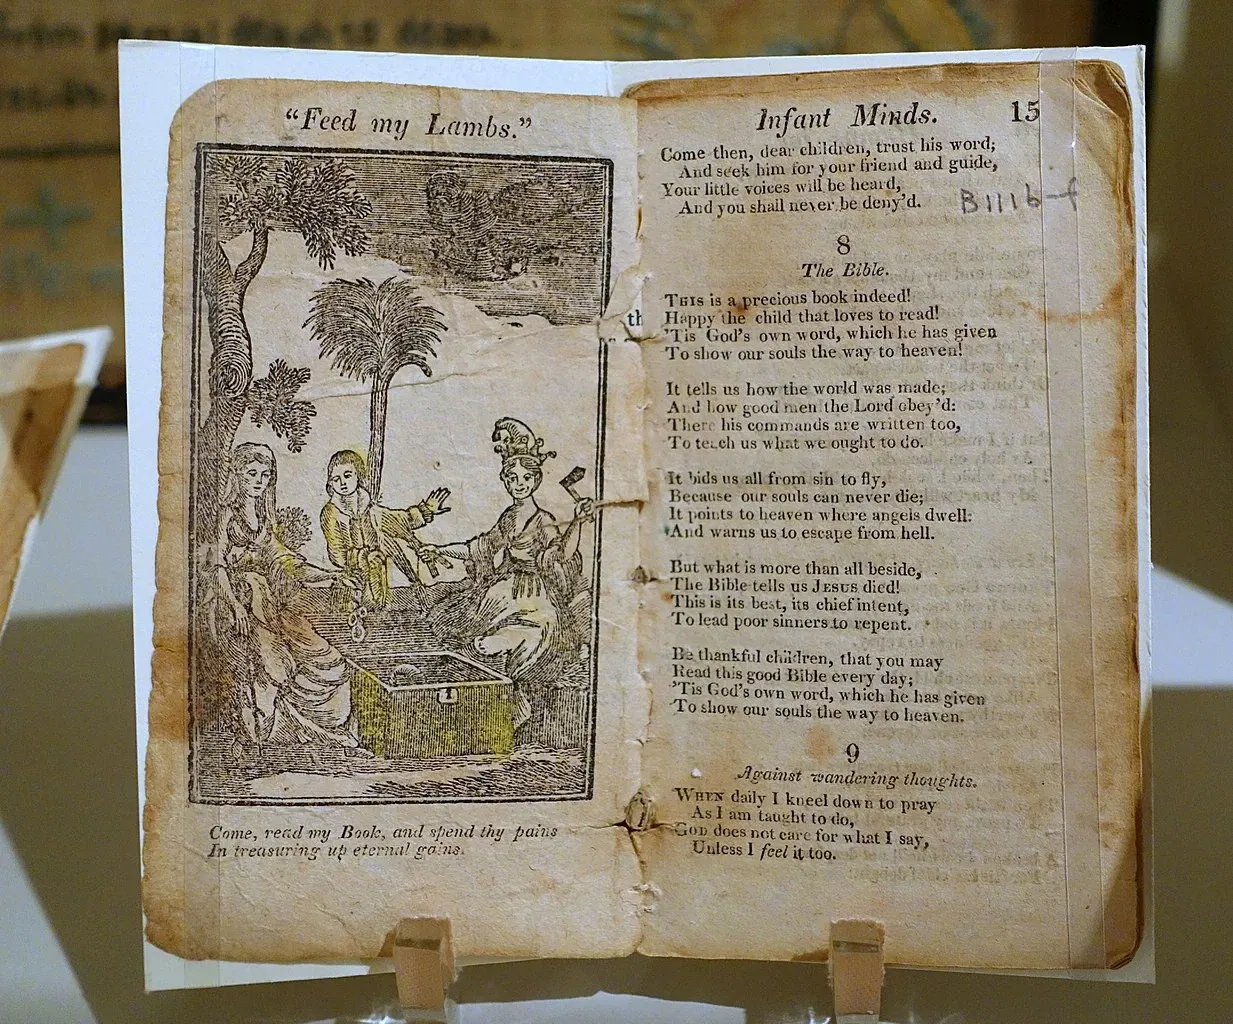 "Feed my Lambs."
Come, read my Book, and spend thy pains
In treasuring up eternal gains.
th
Infant Minds. 15
Come then, dear children, trust his word;
And seek him for your friend and guide,
Your little voices will be heard,
And you shall never be deny'd.
B111b-f
8
The Bible.
THIS is a precious book indeed!
Happy the child that loves to read!
'Tis God's own word, which he has given
To show our souls the way to heaven!
It tells us how the world was made;
And how good men the Lord obey'd:
There his commands are written too,
To teach us what we ought to do.
It bids us all from sin to fly,
Because our souls can never die;
It points to heaven where angels dwell:
And warns us to escape from hell.
But what is more than all beside,
The Bible tells us JESUS died!
This is its best, its chief intent,
To lead poor sinners to repent.
Be thankful children, that you may
Read this good Bible every day;
'Tis God's own word, which he has given
To show our souls the way to heaven.
9
Against wandering thoughts.
WHEN daily I kneel down to pray
As I am taught to do,
GOD does not care for what I say,
Unless I feel it too.